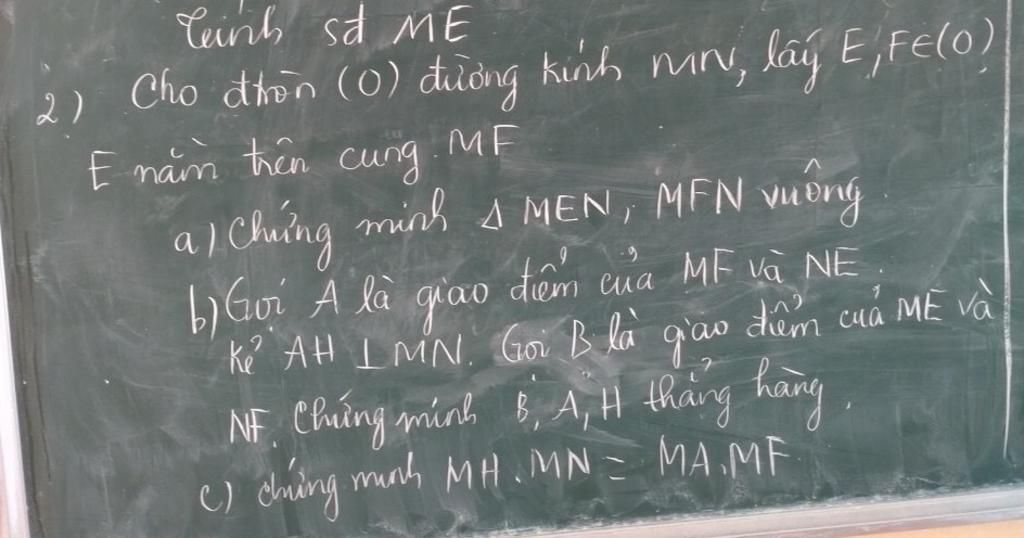 Tính sđ ME
2) Cho đtròn (O) đường kính MN, lấy E, F∈(O)
E nằm trên cung MF
a) Chứng minh Δ MEN, MFN vuông.
b) Gọi A là giao điểm của MF và NE.
kẻ AH ⊥ MN. Gọi B là giao điểm của ME và
NF. Chứng minh B, A, H thẳng hàng.
c) chứng minh MH.MN = MA.MF